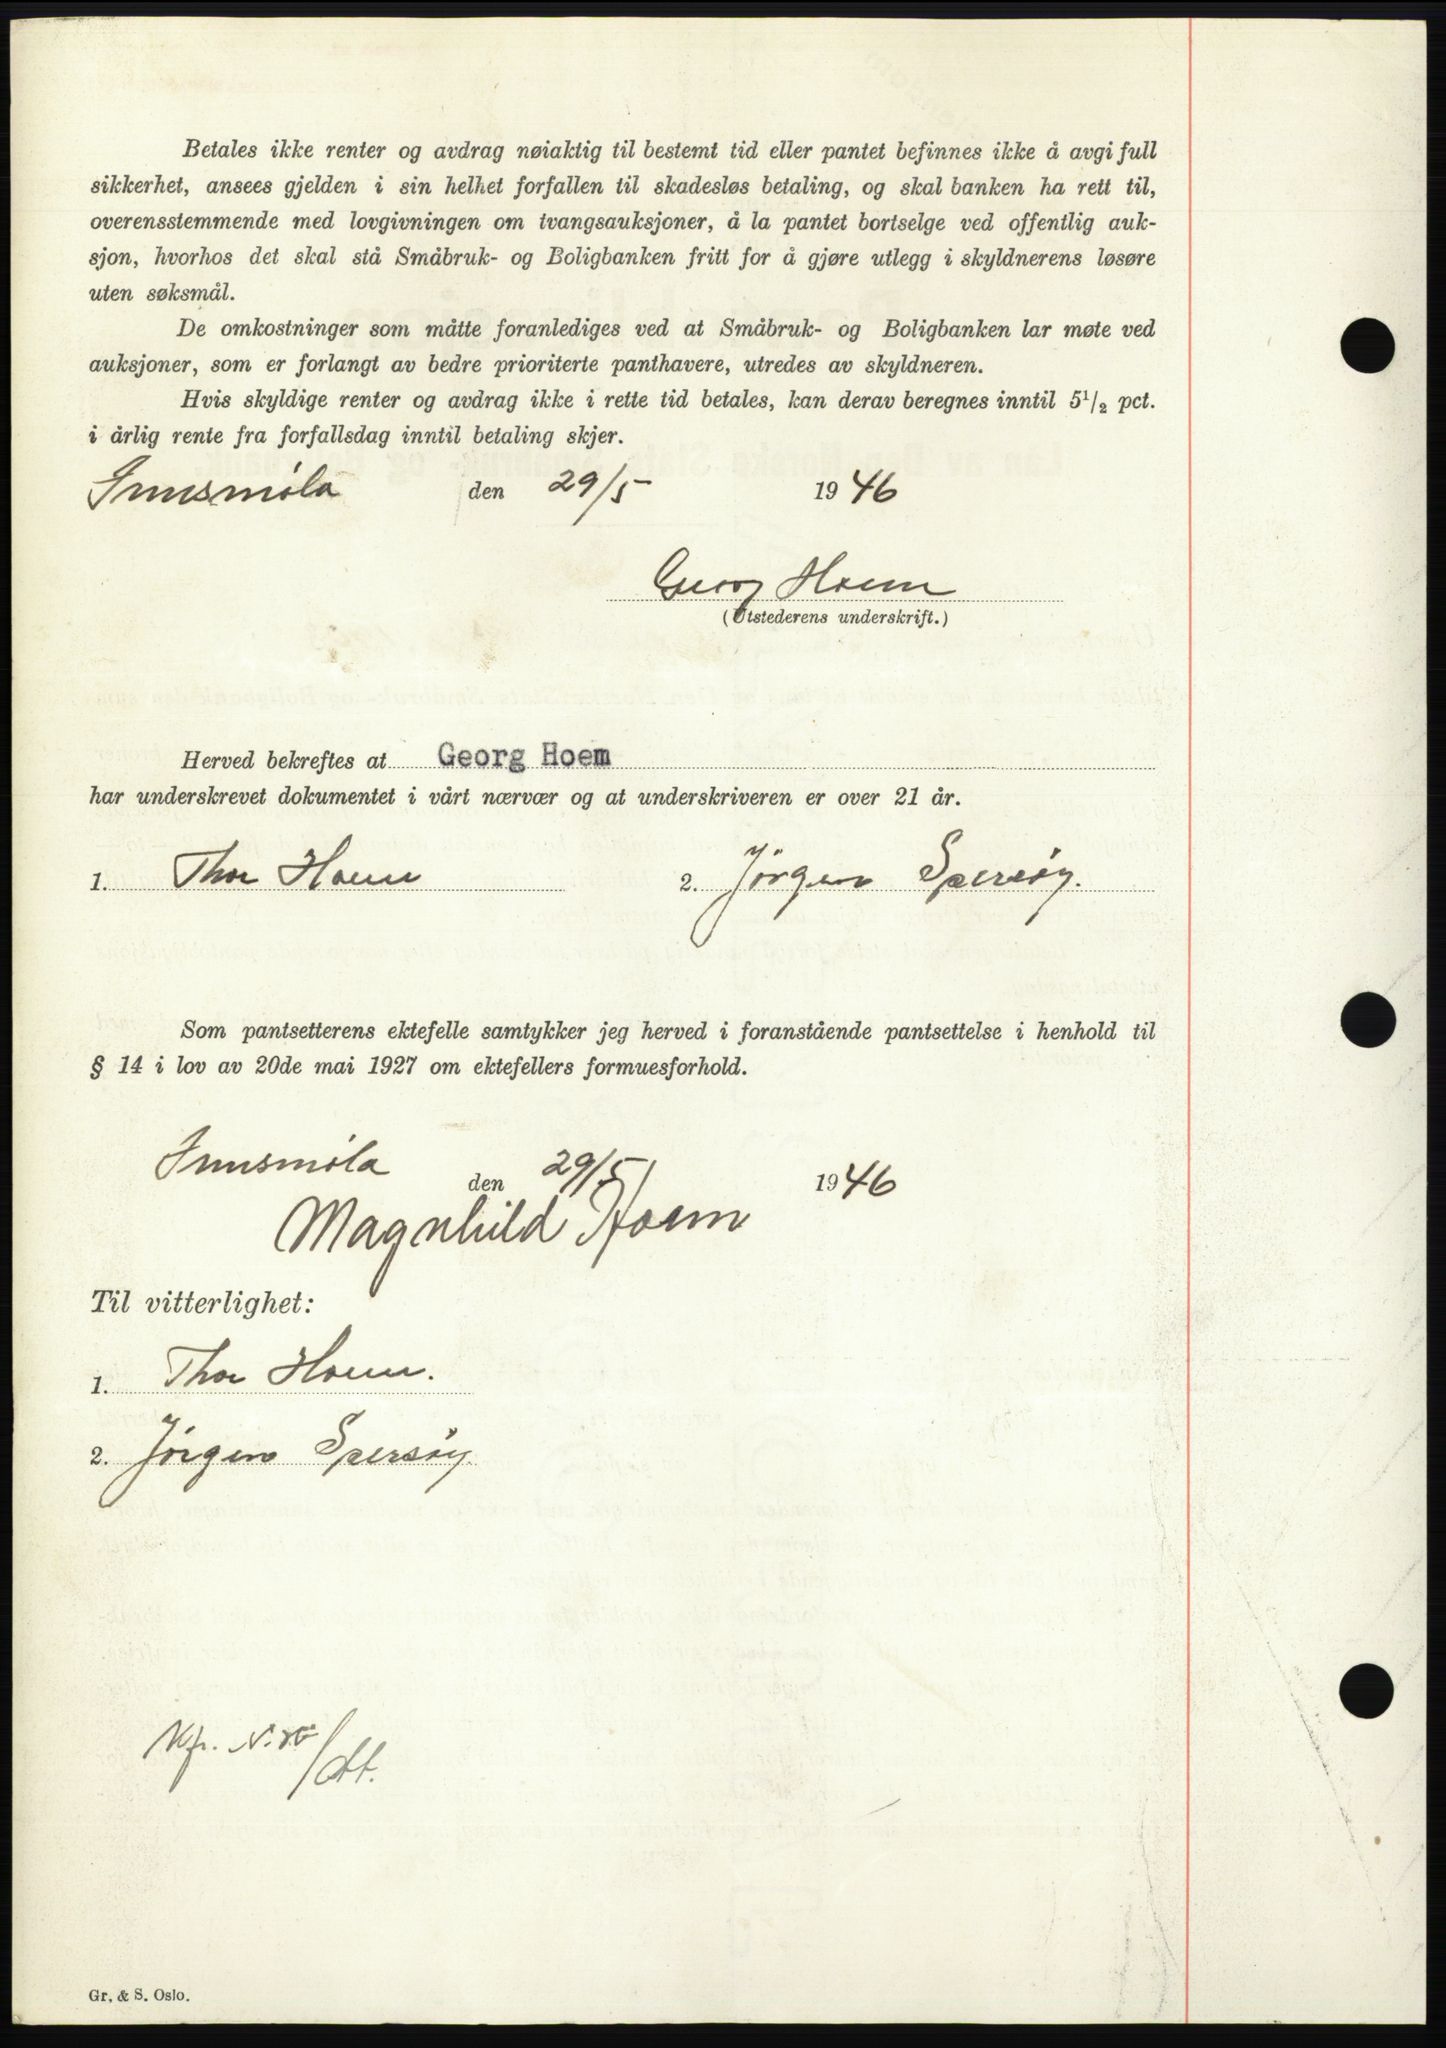 Betales ikke renter og avdrag nøiaktig til bestemt tid eller pantet befinnes ikke å avgi full
sikkerhet, ansees gjelden i sin helhet forfallen til skadesløs betaling, og skal banken ha rett til,
overensstemmende med lovgivningen om tvangsauksjoner, å la pantet bortselge ved offentlig auk-
sjon, hvorhos det skal stå Småbruk- og Boligbanken fritt for å gjøre utlegg i skyldnerens løsøre
uten søksmål.
De omkostninger som måtte foranlediges ved at Småbruk- og Boligbanken lar møte ved
auksjoner, som er forlangt av bedre prioriterte panthavere, utredes av skyldneren.
Hvis skyldige renter og avdrag ikke i rette tid betales, kan derav beregnes inntil 5 1/2 pct.
i årlig rente fra forfallsdag inntil betaling skjer.
Innsmøla den 29/5 1946
Georg Hoem
(Utstederens underskrift.)
Herved bekreftes at Georg Hoem
har underskrevet dokumentet i vårt nærvær og at underskriveren er over 21 år.
1. Thor Hoem 2. Jørgen Spersøy.
Som pantsetterens ektefelle samtykker jeg herved i foranstående pantsettelse i henhold til
§ 14 i lov av 20de mai 1927 om ektefellers formuesforhold.
Innsmøla den 29/5 1946
Magnhild Hoem
Til vitterlighet:
1. Thor Hoem.
2. Jørgen Spersøy.
Gr. & S. Oslo.